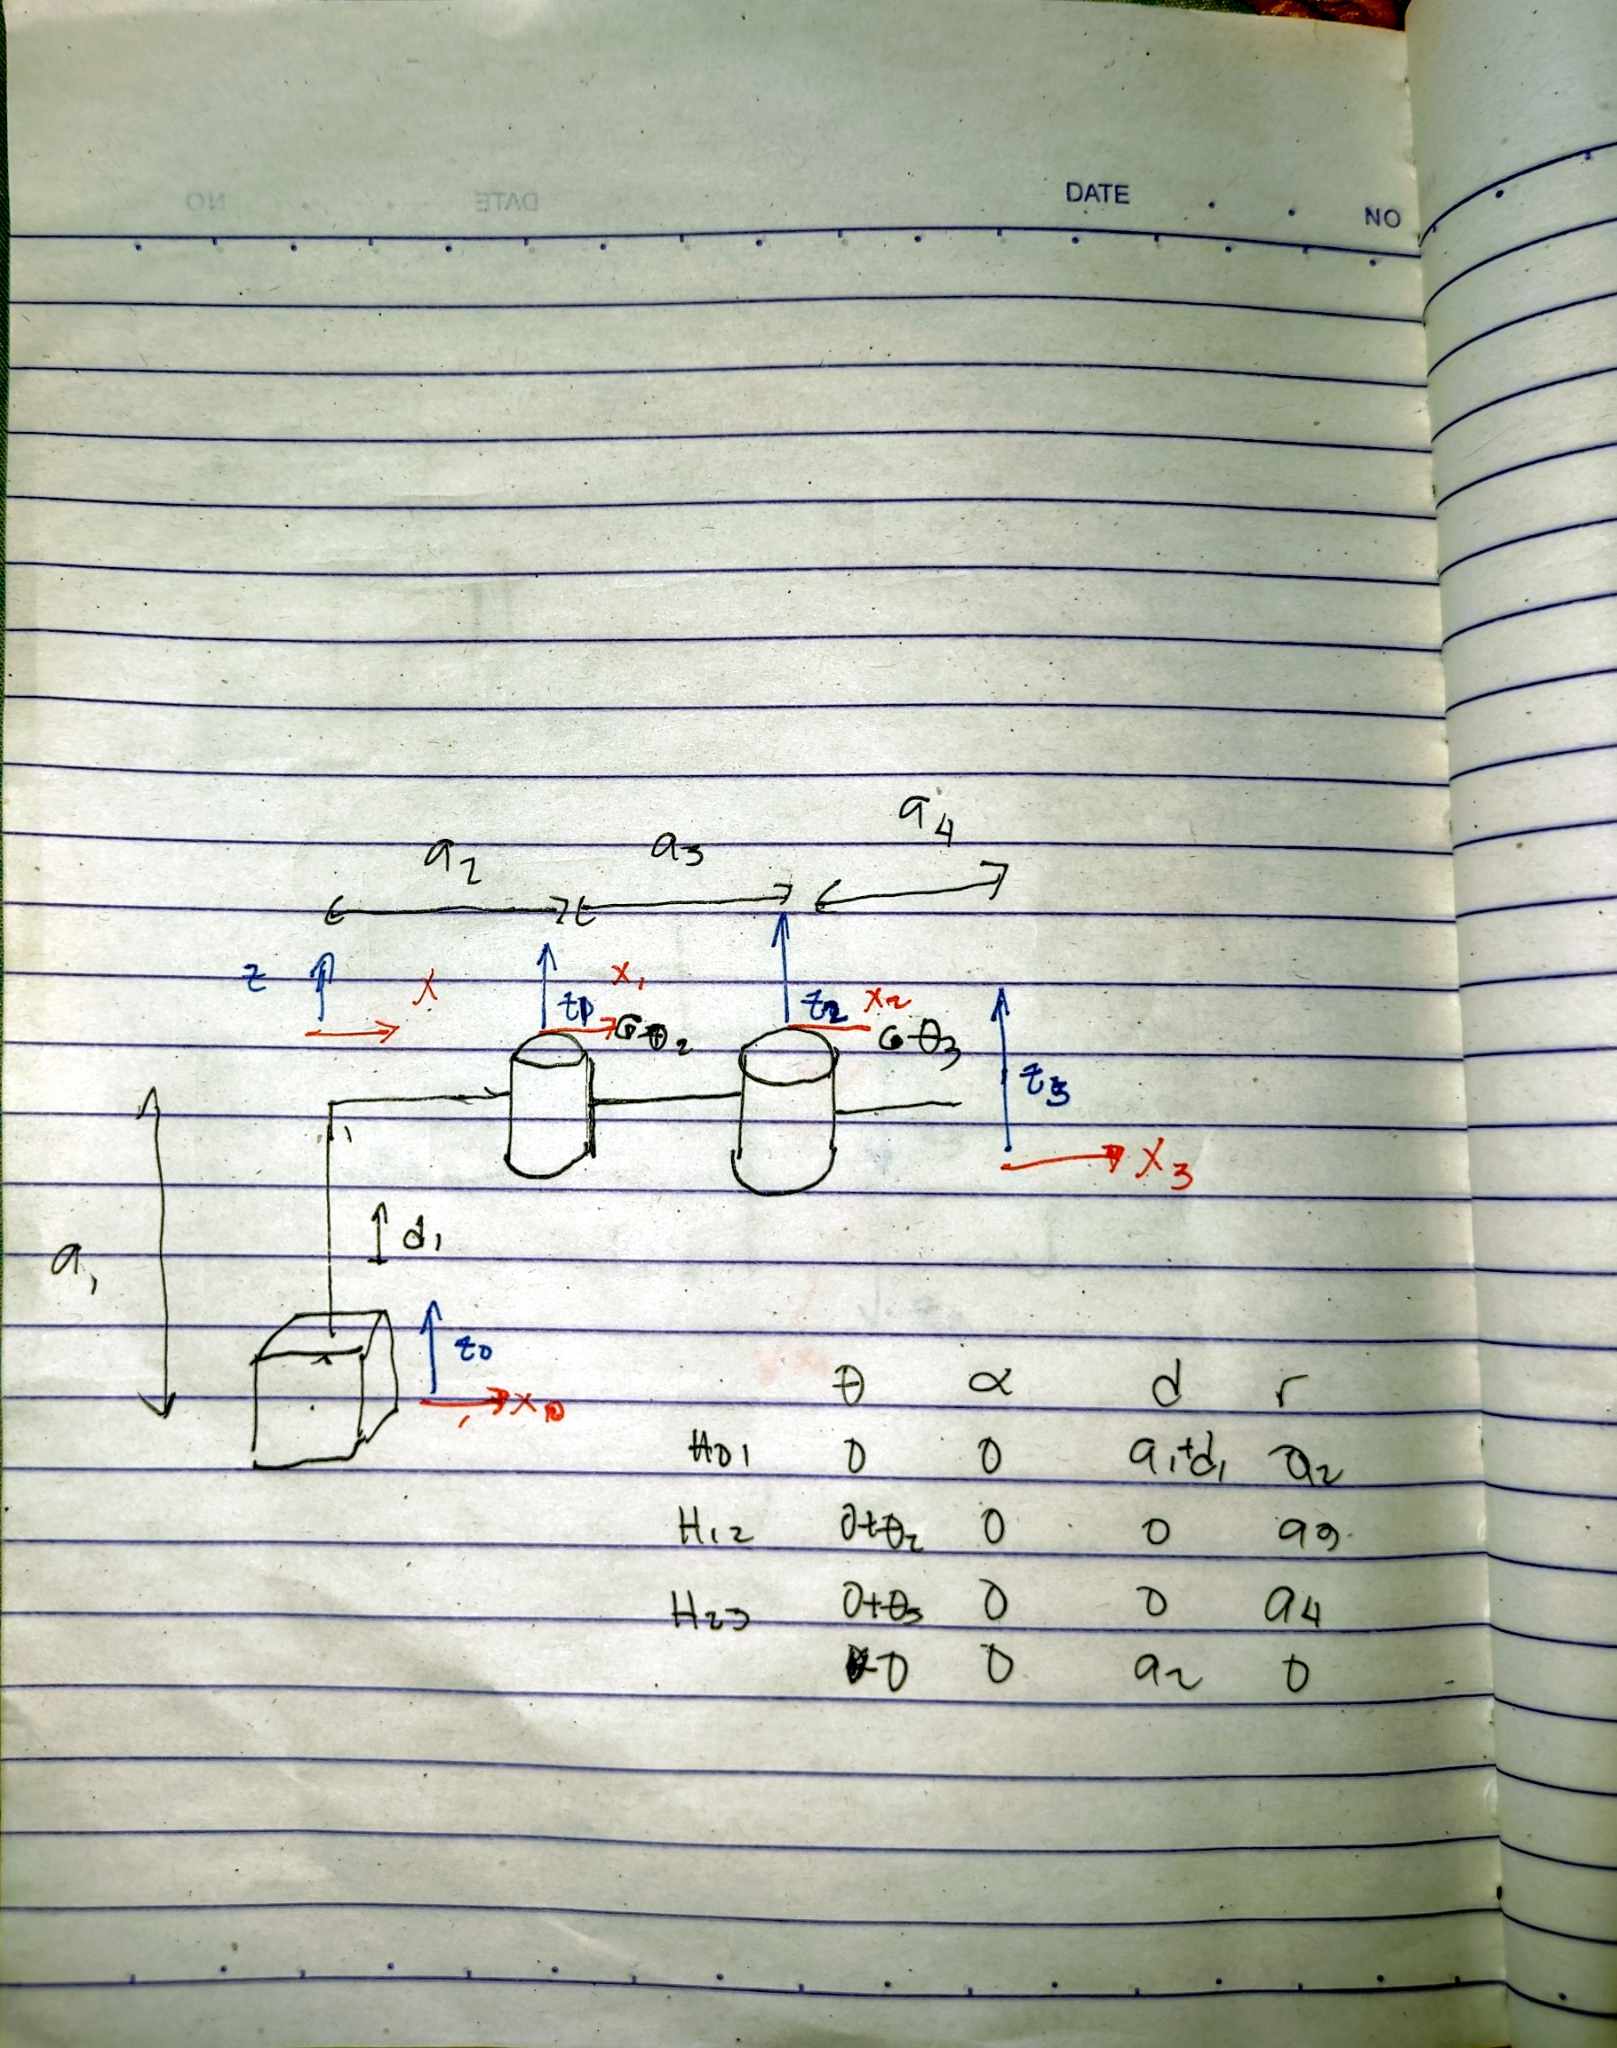 DATE
NO
a₄
a₂ a₃
z x x₁
z₁ z₂ x₂
θ₂ θ₃
z₃
x₃
d₁
a₁
z₀
x₀
θ α d r
H01 0 0 a₁+d₁ a₂
H12 0+θ₂ 0 0 a3
H23 0+θ₃ 0 0 a4
0 0 a₂ 0